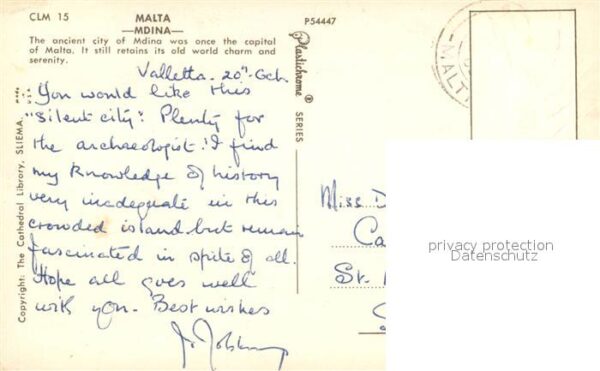 CLM 15
MALTA
—MDINA—
P54447
The ancient city of Mdina was once the capital
of Malta. It still retains its old world charm and
serenity.
Valletta. 20th Feb.
You would like this
"silent city". Plenty for
the archaeologist! I find
my knowledge of history
very inadequate in this
crowded island but remain
fascinated in spite of all.
Hope all goes well
with you. Best wishes
J.
Copyright: The Cathedral Library, SLIEMA.
Plastichrome ® SERIES
MALT
Miss D
Ca
St.
privacy protection
Datenschutz